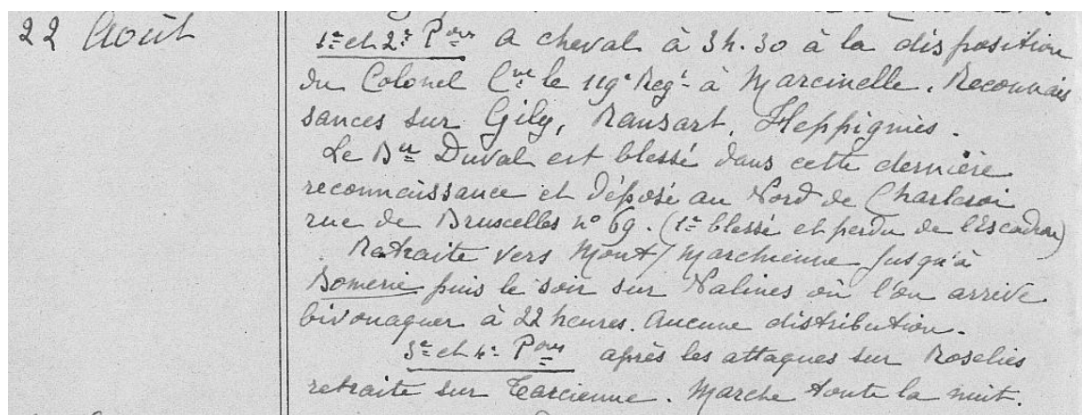 22 Août
1er et 2e Pons A cheval à 3h.30 à la disposition
du Colonel Ct le 119e Regt à Marcinelle. Reconnais
sances sur Gily, Ransart, Heppignies.
Le Ber Duval est blessé dans cette dernière
reconnaissance et déposé au Nord de Charleroi
rue de Bruxelles n° 69. (1er blessé et perdu de l'Escadron)
Retraite vers Mont s/ Marchienne jusqu'à
Bomerie puis le soir sur Nalines où l'on arrive
bivouaquer à 22 heures. Aucune distribution.
3e et 4e Pons après les attaques sur Roselies
retraite sur Tarcienne. Marche toute la nuit.